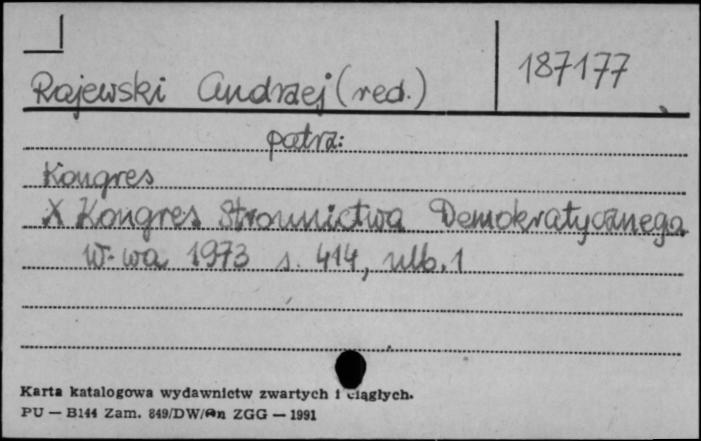 187177
Rajewski Andrzej (red.)
patrz:
Kongres
X Kongres Stronnictwa Demokratycznego
W-wa 1973 s. 414, nlb. 1
Karta katalogowa wydawnictw zwartych i ciągłych.
PU — B144 Zam. 849/DW/An ZGG — 1991